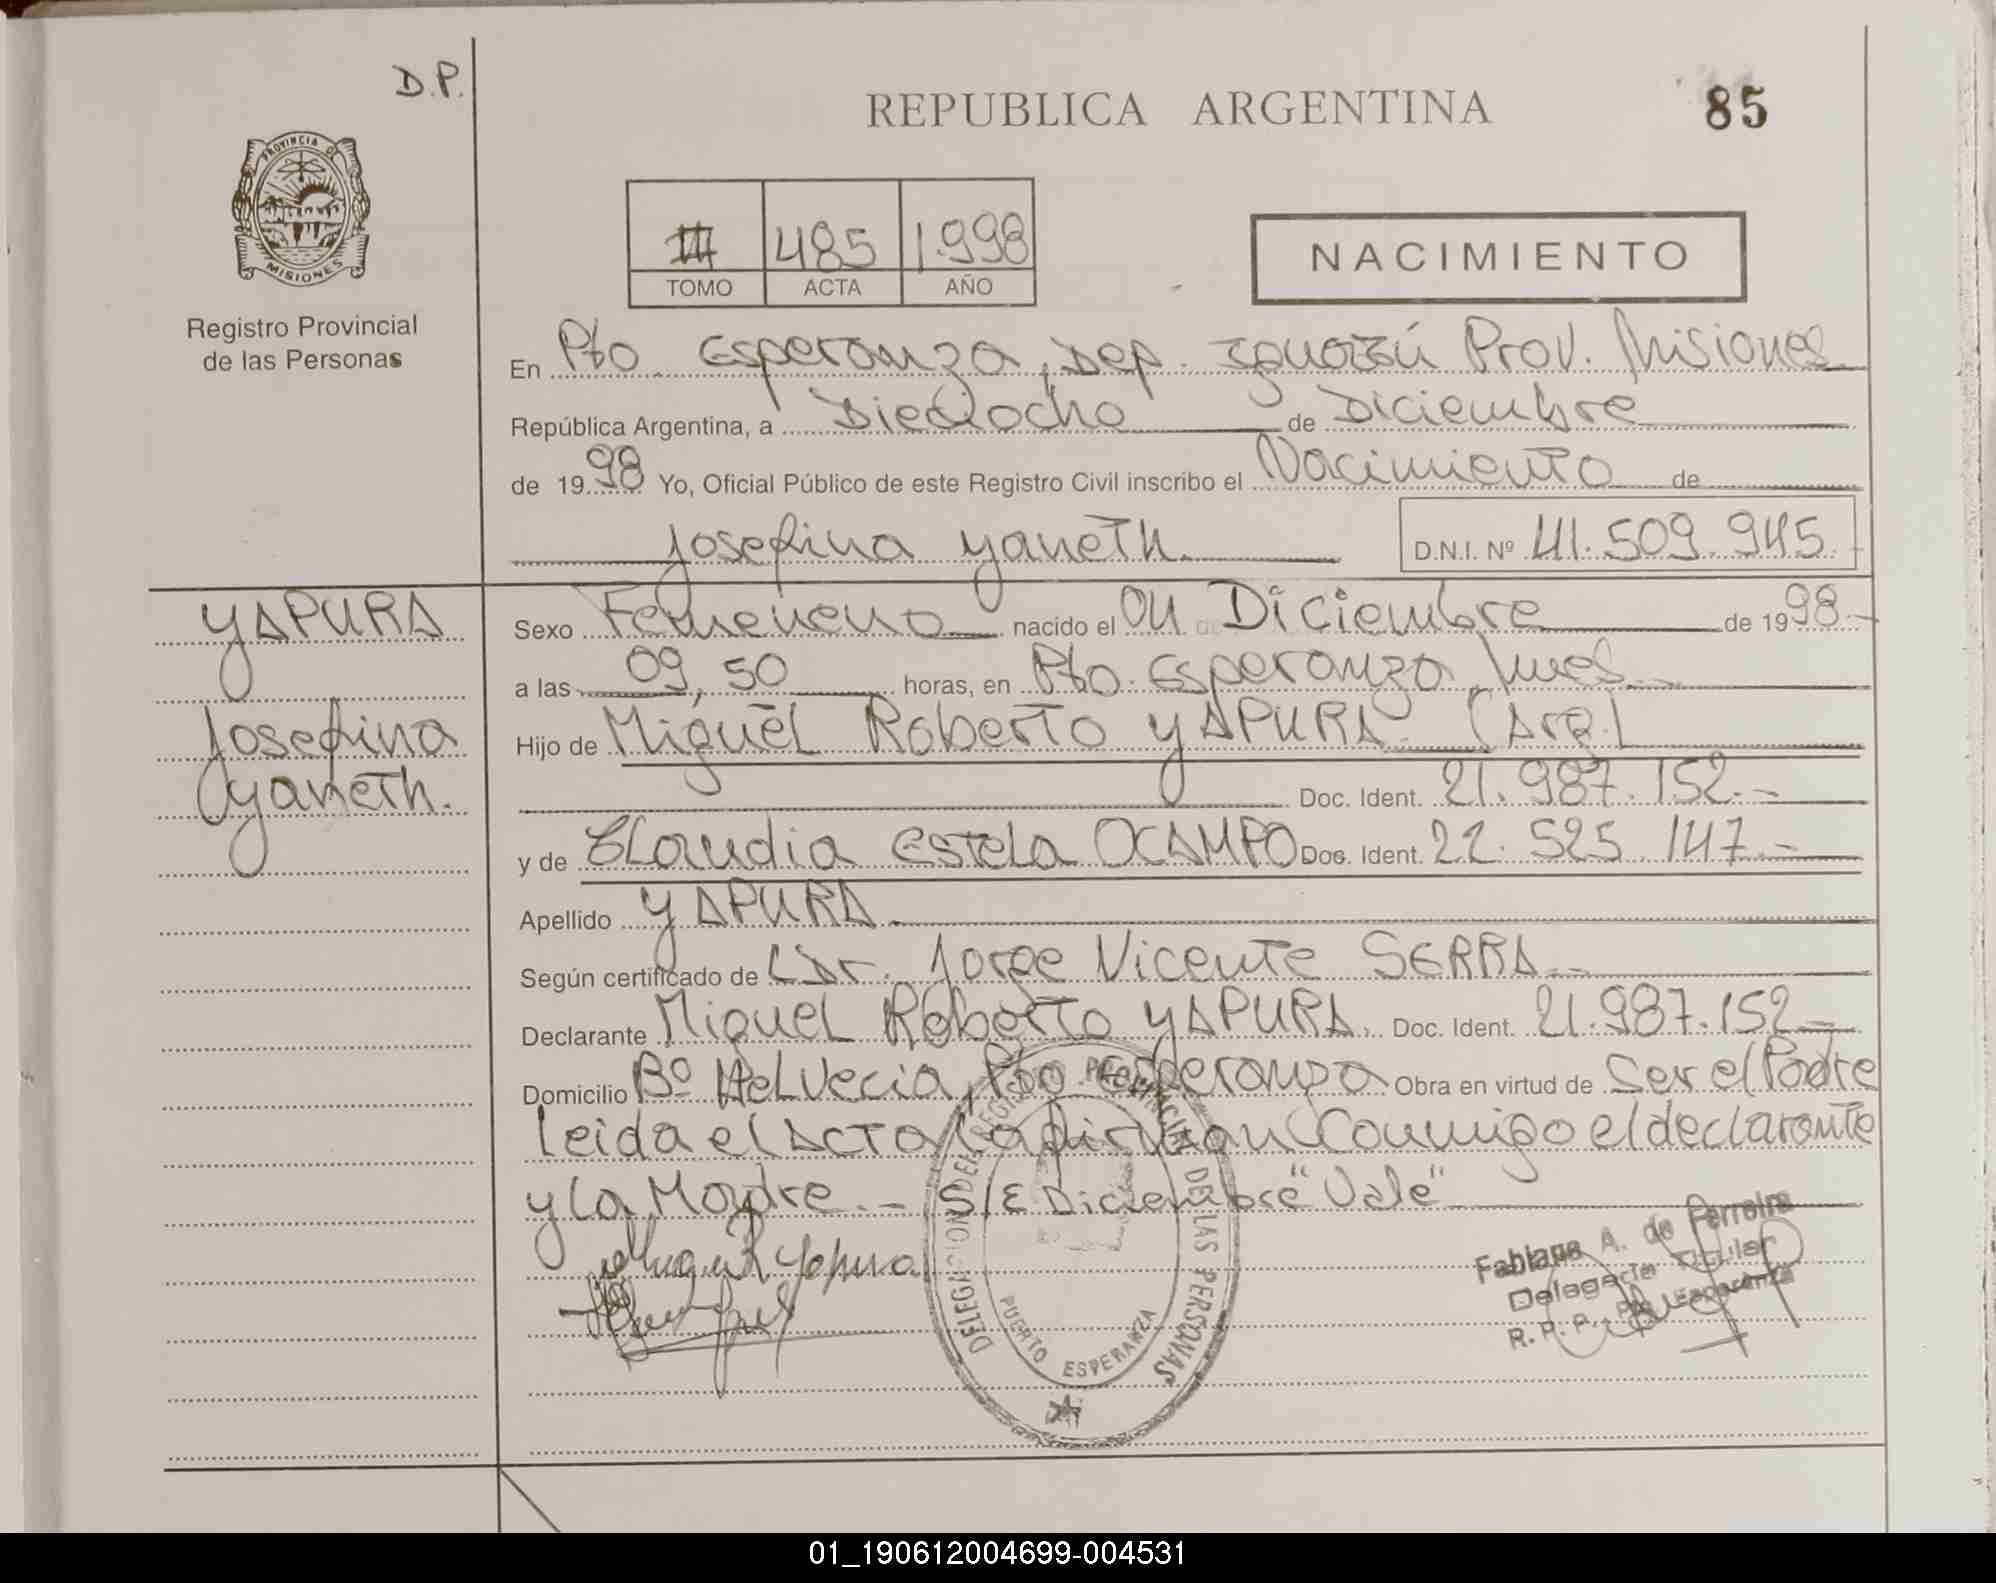 D.P.
REPUBLICA ARGENTINA
85
PROVINCIA DE
MISIONES
Registro Provincial
de las Personas
III 485 1.998
TOMO ACTA AÑO
NACIMIENTO
En Pto Esperanza, Dep. Iguazú Prov. Misiones
República Argentina, a Dieciocho de Diciembre
de 1998 Yo, Oficial Público de este Registro Civil inscribo el Nacimiento de
Josefina Yaneth. D.N.I. Nº 41.509.945.
YAPURA
Josefina
Yaneth.
Sexo Femeneno nacido el 04 de Diciembre de 1998.-
a las 09,50 horas, en Pto. Esperanza, Mnes.
Hijo de Miguel Roberto YAPURA (Arg.)
Doc. Ident. 21.987.152.-
y de Claudia Estela OCAMPO Doc. Ident. 22.525.147.-
Apellido YAPURA
Según certificado de Dr. Jorge Vicente SERRA
Declarante Miguel Roberto YAPURA. Doc. Ident. 21.987.152
Domicilio Bº Helvecia, Pto Esperanza Obra en virtud de Ser el Padre
Leida el Acta la firman Conmigo el declarante
y la Madre.- S/E Diciembre "Vale"
DELEGACION DEL REGISTRO PROVINCIAL DE LAS PERSONAS
PUERTO ESPERANZA
Fabiana A. de Ferreira
Delegada Titular
R.P.P. Pto Esperanza
01_190612004699-004531